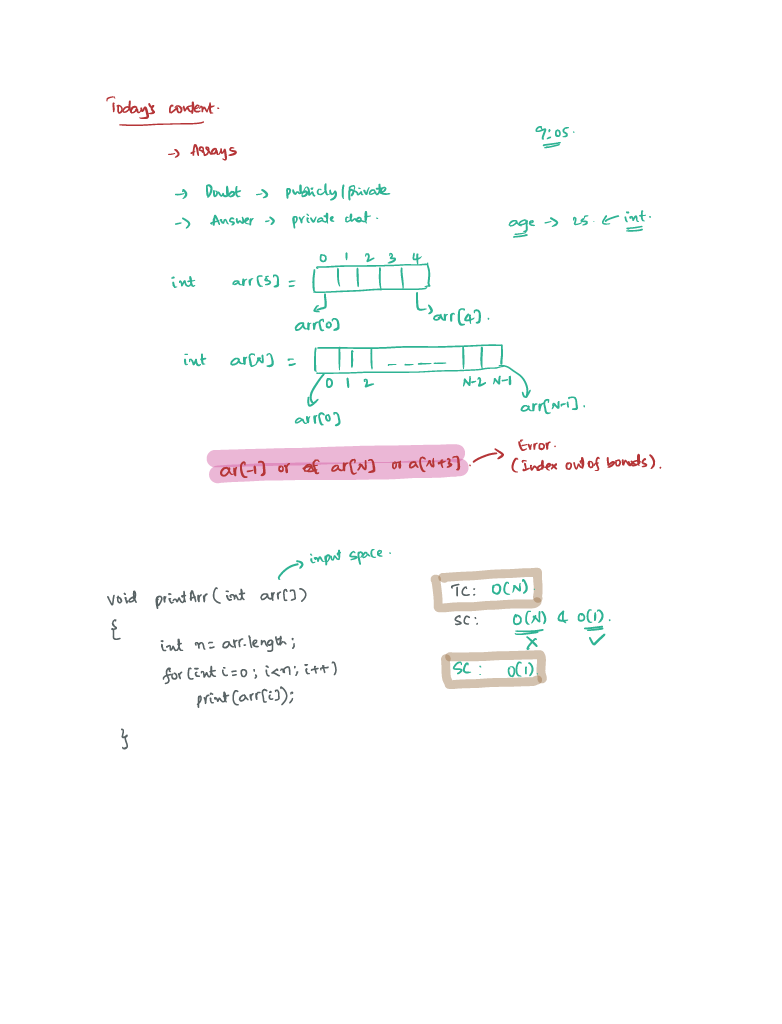 Today's content.
9:05.
→ Arrays
→ Doubt → publicly/private
→ Answer → private chat.
age → 25 ← int.
0 1 2 3 4
int arr[5] =
arr[0] arr[4].
int ar[N] =
0 1 2 ---- N-2 N-1
arr[0] arr[N-1].
Error.
ar[-1] or ar[N] or a[N+3]. → (Index out of bonuds).
input space.
void printArr(int arr[])
TC: O(N)
{
SC: O(N) & O(1).
int n = arr.length;
x ✓
for(int i=0; i<n; i++)
SC: O(1)
print(arr[i]);
}